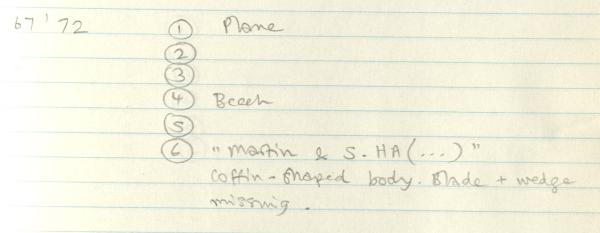 67'72 ① Plane
②
③
④ Beech
⑤
⑥ "Martin & S. HA(...)"
coffin-shaped body. Blade + wedge
missing.